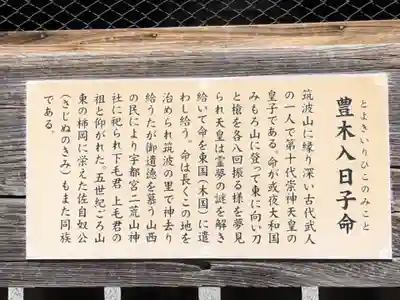 とよきいりひこのみこと
豊木入日子命
筑波山に縁り深い古代武人
の一人で第十代崇神天皇の
皇子である。命が或夜大和国
みもろ山に登って東に向い刀
と槍を各八回振る様を夢見
られ天皇は霊夢の謎を解き
給いて命を東国(木国)に遣
わし給う。命は長くこの地を
治められ筑波の里で神去り
給うたが御遺徳を慕う山西
の民により宇都宮二荒山神
社に祀られ下毛君 上毛君の
祖と仰がれた。五世紀ごろ山
東の柿岡に栄えた佐自奴公
(さじぬのきみ)もまた同族
である。